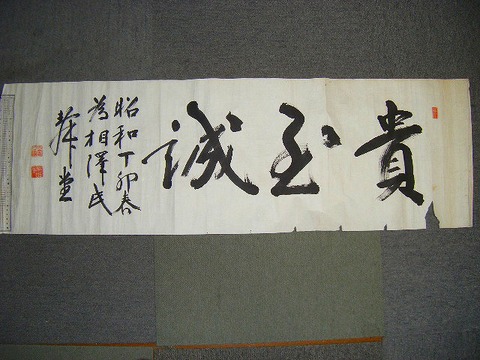 貴至誠
昭和丁卯春
為相澤氏
堂